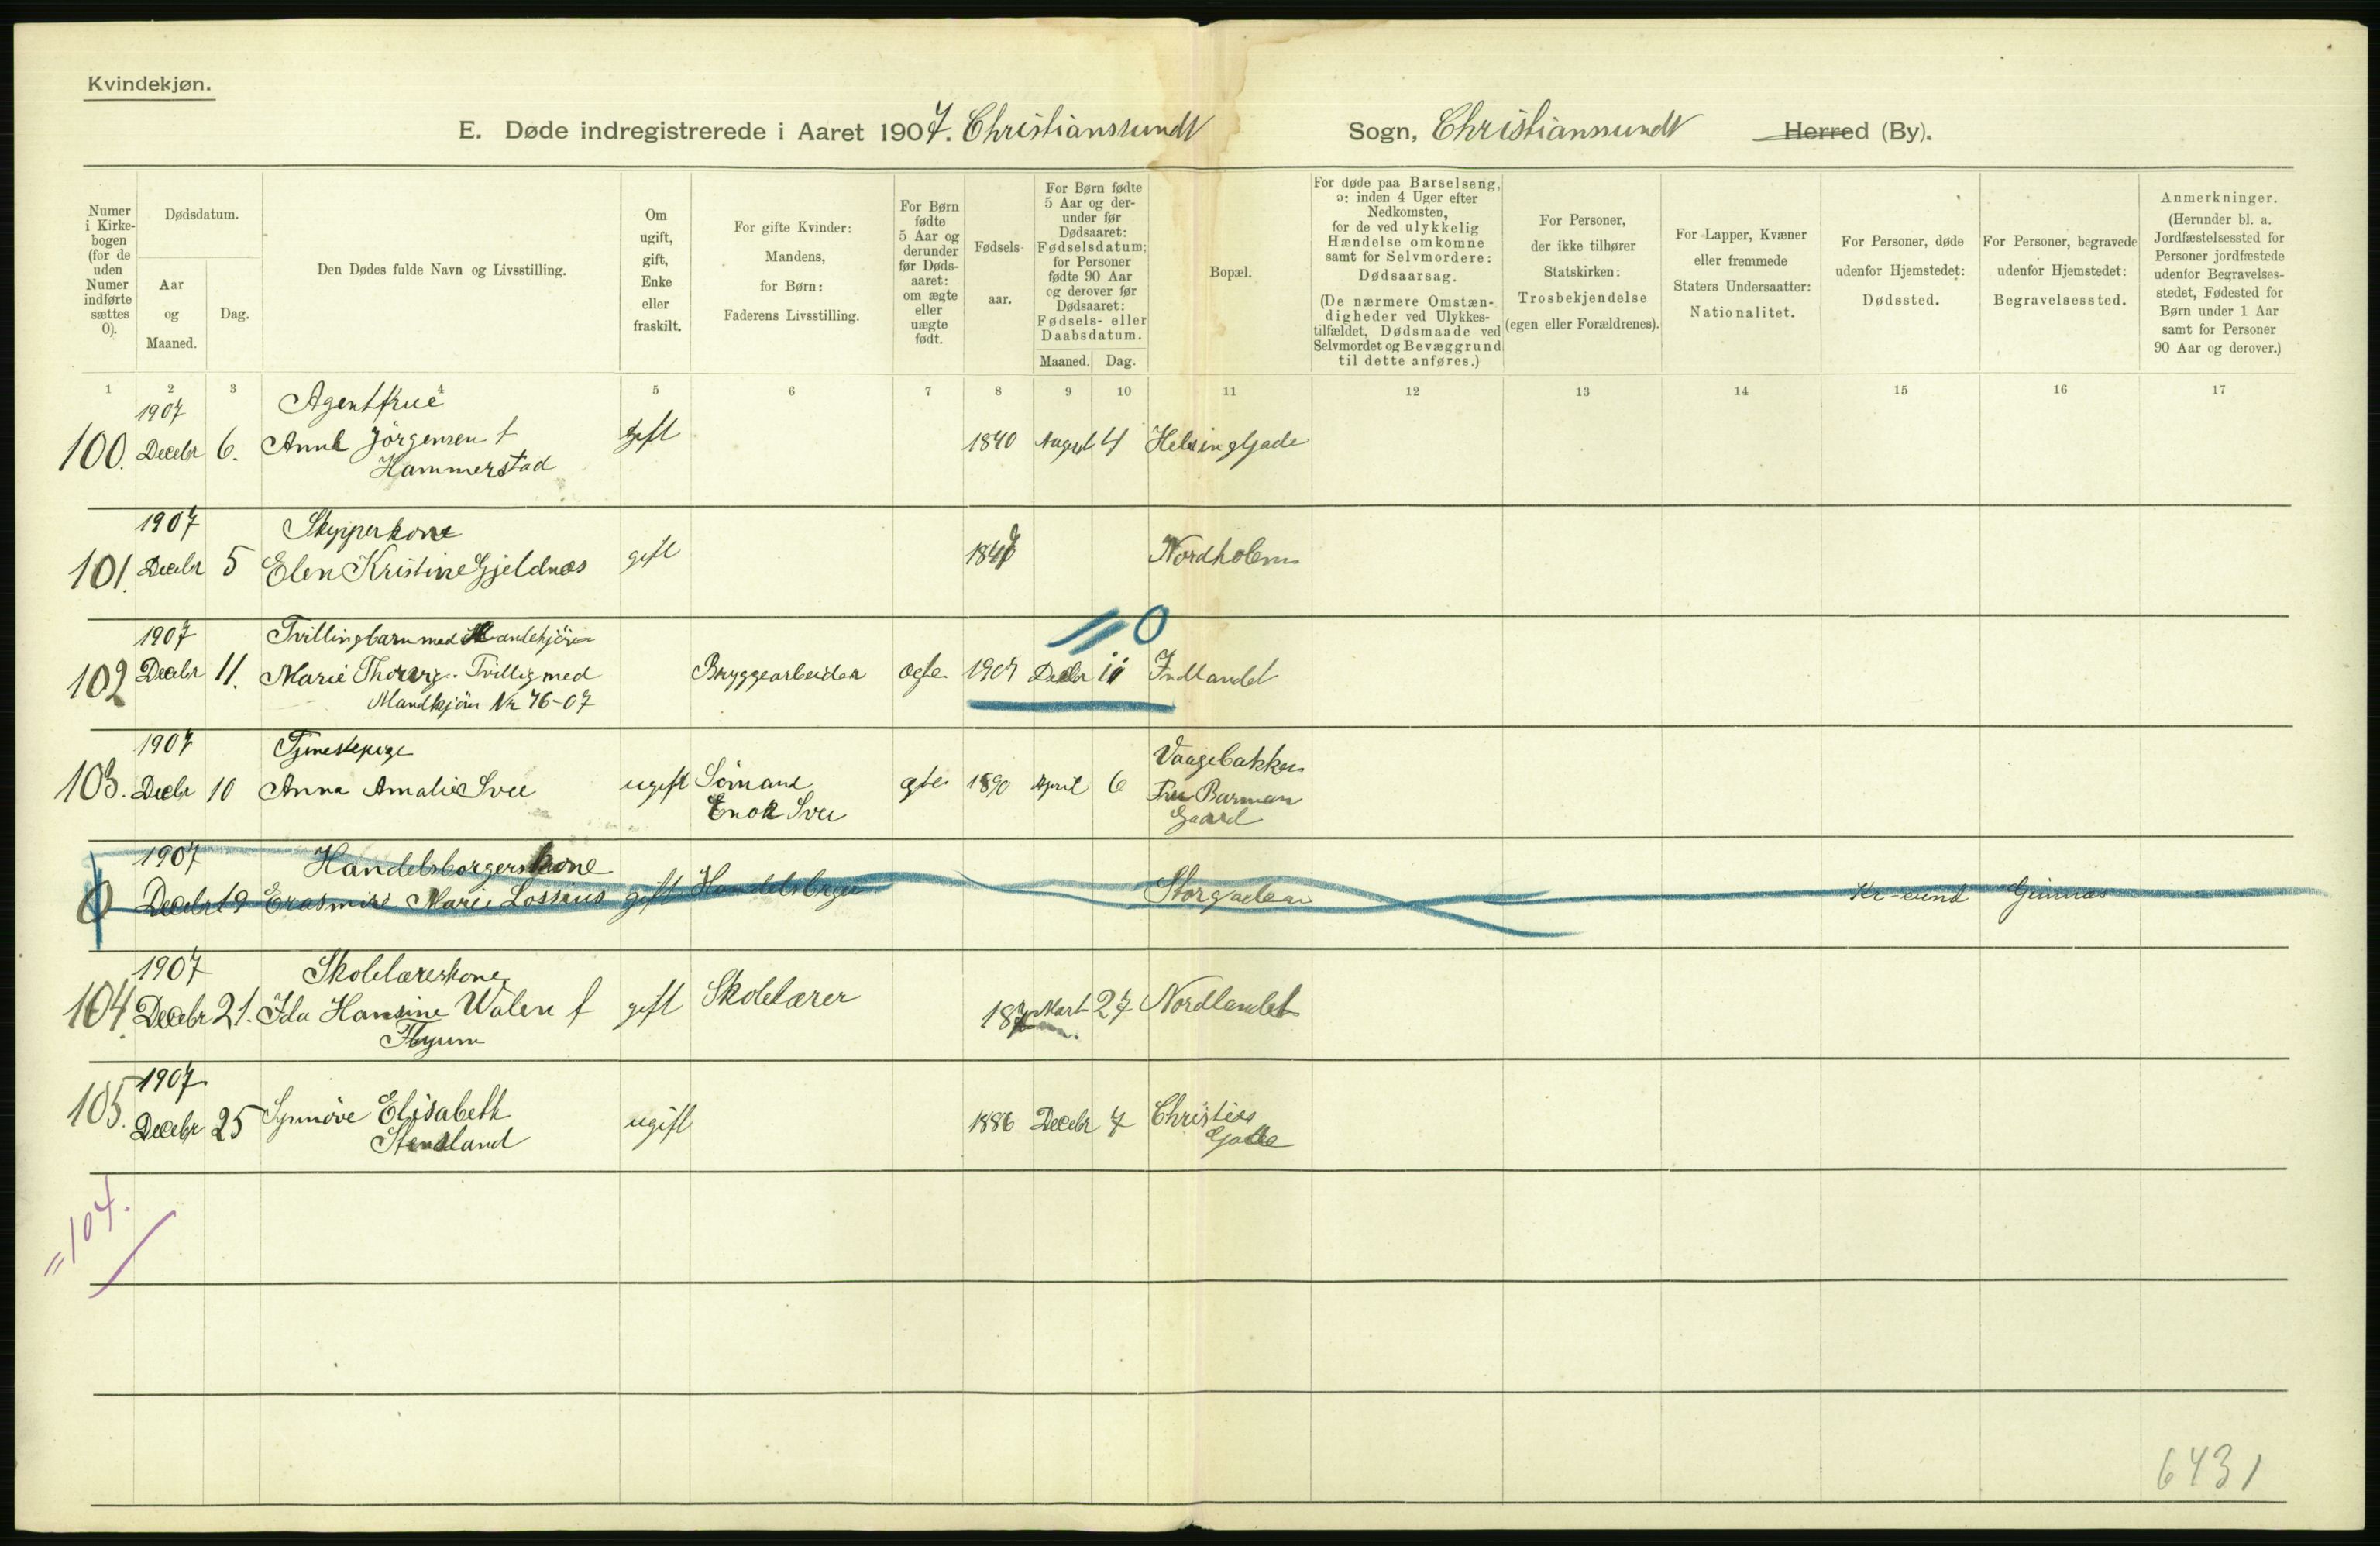 Kvindekjøn.
E. Døde indregistrerede i Aaret 1907. Christianssundt Sogn, Christianssundt Herred (By).
Numer i Kirkebogen (for de uden Numer indførte sættes 0).
Dødsdatum.
Aar og Maaned.
Dag.
Den Dødes fulde Navn og Livsstilling.
Om ugift, gift, Enke eller fraskilt.
For gifte Kvinder: Mandens, for Børn: Faderens Livsstilling.
For Børn fødte 5 Aar og derunder før Dødsaaret: om ægte eller uægte født.
Fødselsaar.
For Børn fødte 5 Aar og derunder før Dødsaaret: Fødselsdatum; for Personer fødte 90 Aar og derover før Dødsaaret: Fødsels- eller Daabsdatum.
Maaned. Dag.
Bopæl.
For døde paa Barselseng, ɔ: inden 4 Uger efter Nedkomsten, for de ved ulykkelig Hændelse omkomne samt for Selvmordere: Dødsaarsag.
(De nærmere Omstændigheder ved Ulykkestilfældet, Dødsmaade ved Selvmordet og Bevæggrund til dette anføres.)
For Personer, der ikke tilhører Statskirken: Trosbekjendelse (egen eller Forældrenes).
For Lapper, Kvæner eller fremmede Staters Undersaatter: Nationalitet.
For Personer, døde udenfor Hjemstedet: Dødssted.
For Personer, begravede udenfor Hjemstedet: Begravelsessted.
Anmerkninger.
(Herunder bl. a. Jordfæstelsessted for Personer jordfæstede udenfor Begravelsesstedet, Fødested for Børn under 1 Aar samt for Personer 90 Aar og derover.)
1 2 3 4 5 6 7 8 9 10 11 12 13 14 15 16 17
1907 Agentfrue
100. Decebr 6. Anna Jörgensen f Gift 1840 August 4 Helsinggade
Hammerstad
1907 Skypperkone
101. Decebr 5 Elen Kristine Gjeldnæs gift 1847 Nordholem
1907 Tvillingbarn med Mandehjön
102 Decebr 11. Marie Thorvig. Tvillig med Bryggearbeider ægte 1907 Decebr 11 Indlandet
Mandkjön Nr 76-07
10
1907 Tjenestepige Vaagebakken
103. Decbr 10 Anna Amalie Svee ugift Sömand ægte 1890 April 6 Fru Barman
Enok Svee Gaard
1907 Handelsborgerskone
0 Decebr 19 Erasmine Marie Lossius gift Handelsbrger Storgaden Kr-sund
1907 Skolelæreskone
104. Decebr 21. Ida Hansine Walen f gift Skolelærer Mart 27 Nordlandet
1907
105. Decebr 25 Synnöve Elisabeth ugift 1886 Decebr 7 Christies
Stensland Gade
=104.
6431